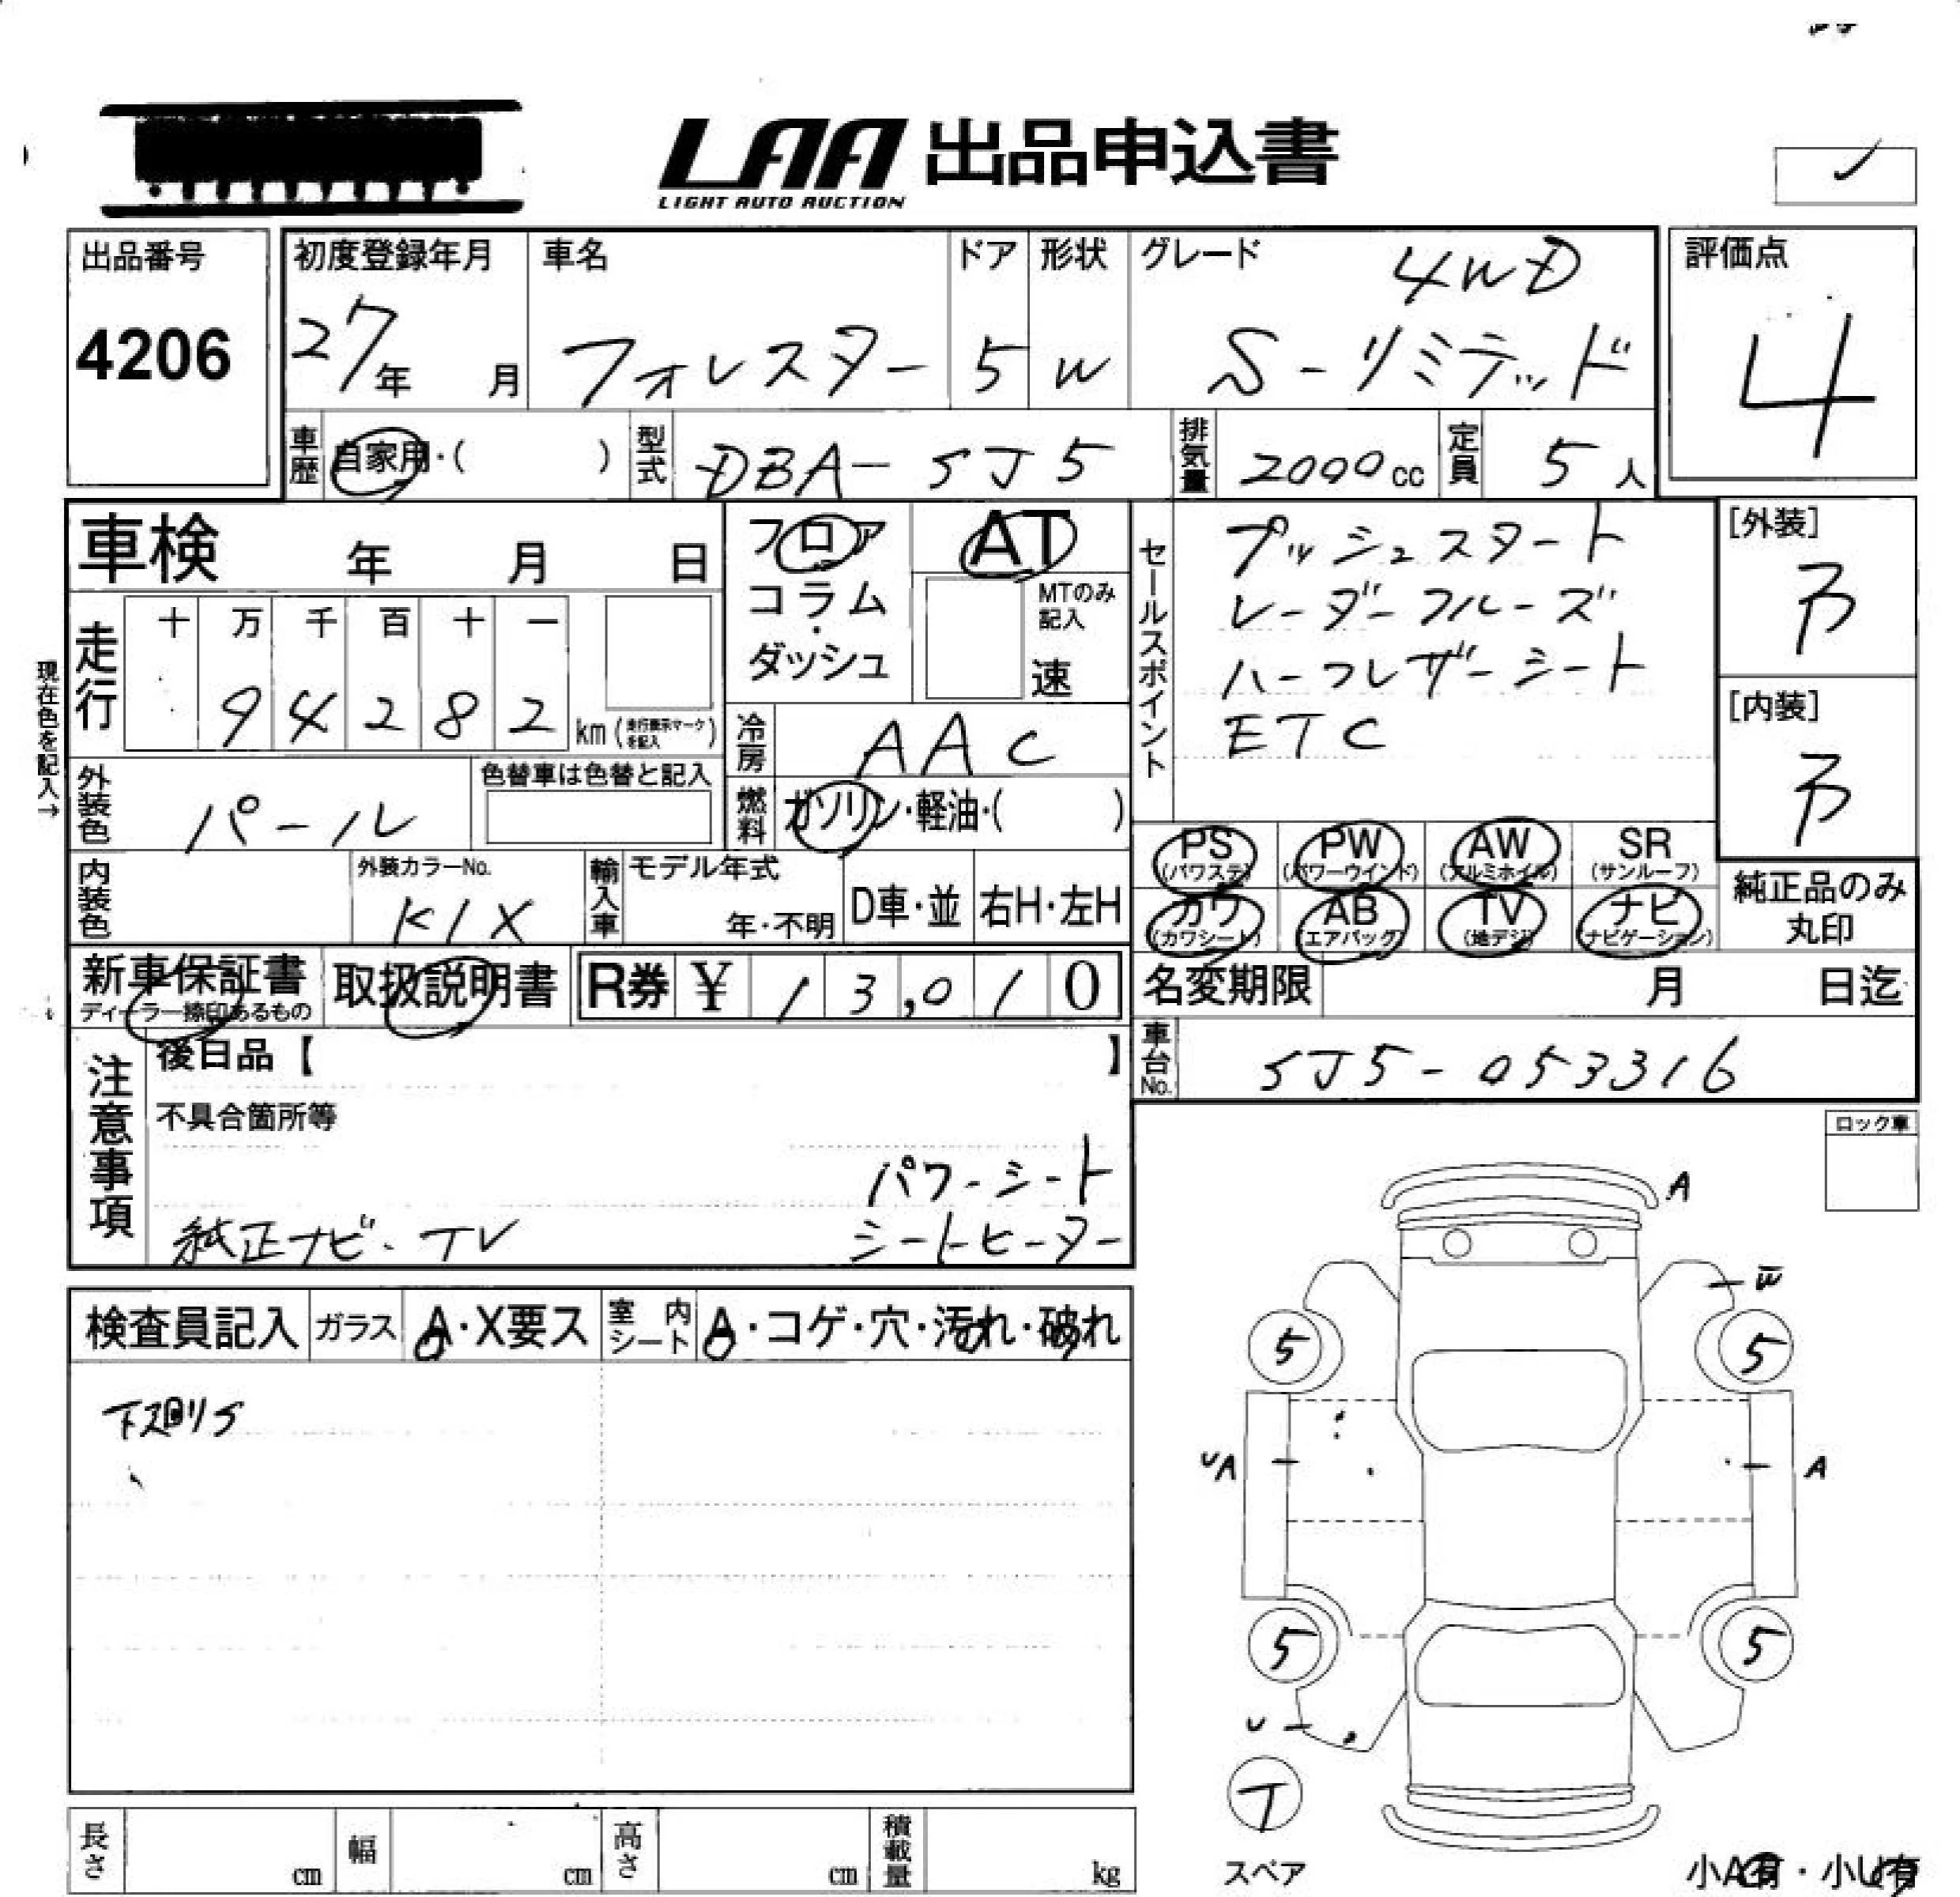 LAA 出品申込書
LIGHT AUTO AUCTION
出品番号
4206
初度登録年月
27年 月
車名
フォレスター
ドア
5
形状
W
グレード
4WD
S-リミテッド
評価点
4
車歴 自家用・( )
型式 DBA-SJ5
排気量 2000cc
定員 5人
車検 年 月 日
フロア
コラム
・
ダッシュ
AT
MTのみ
記入
速
セールスポイント
プッシュスタート
レーダークルーズ
ハーフレザーシート
ETC
[外装]
B
[内装]
B
現在色を記入→
走行
十 万 千 百 十 一
9 4 2 8 2 km (走行表示マークを記入)
冷房 AAC
外装色 パール
色替車は色替と記入
燃料 ガソリン・軽油・( )
PS
(パワステ)
PW
(パワーウインド)
AW
(アルミホイル)
SR
(サンルーフ)
カワ
(カワシート)
AB
(エアバッグ)
TV
(地デジ)
ナビ
(ナビゲーション)
純正品のみ
丸印
内装色
外装カラーNo.
K1X
輸入車
モデル年式
年・不明
D車・並
右H・左H
新車保証書
ディーラー捺印あるもの
取扱説明書
R券 ¥ 13,010
名変期限 月 日迄
車台No. SJ5-053316
注意事項
後日品【 】
不具合箇所等
パワーシート
純正ナビ・TV
シートヒーター
ロック車
検査員記入
ガラス A・X要ス
室内シート A・コゲ・穴・汚れ・破れ
下廻りS
A
W
5
5
UA
A
5
5
U
T
スペア
小A有・小U有
長さ cm
幅 cm
高さ cm
積載量 kg